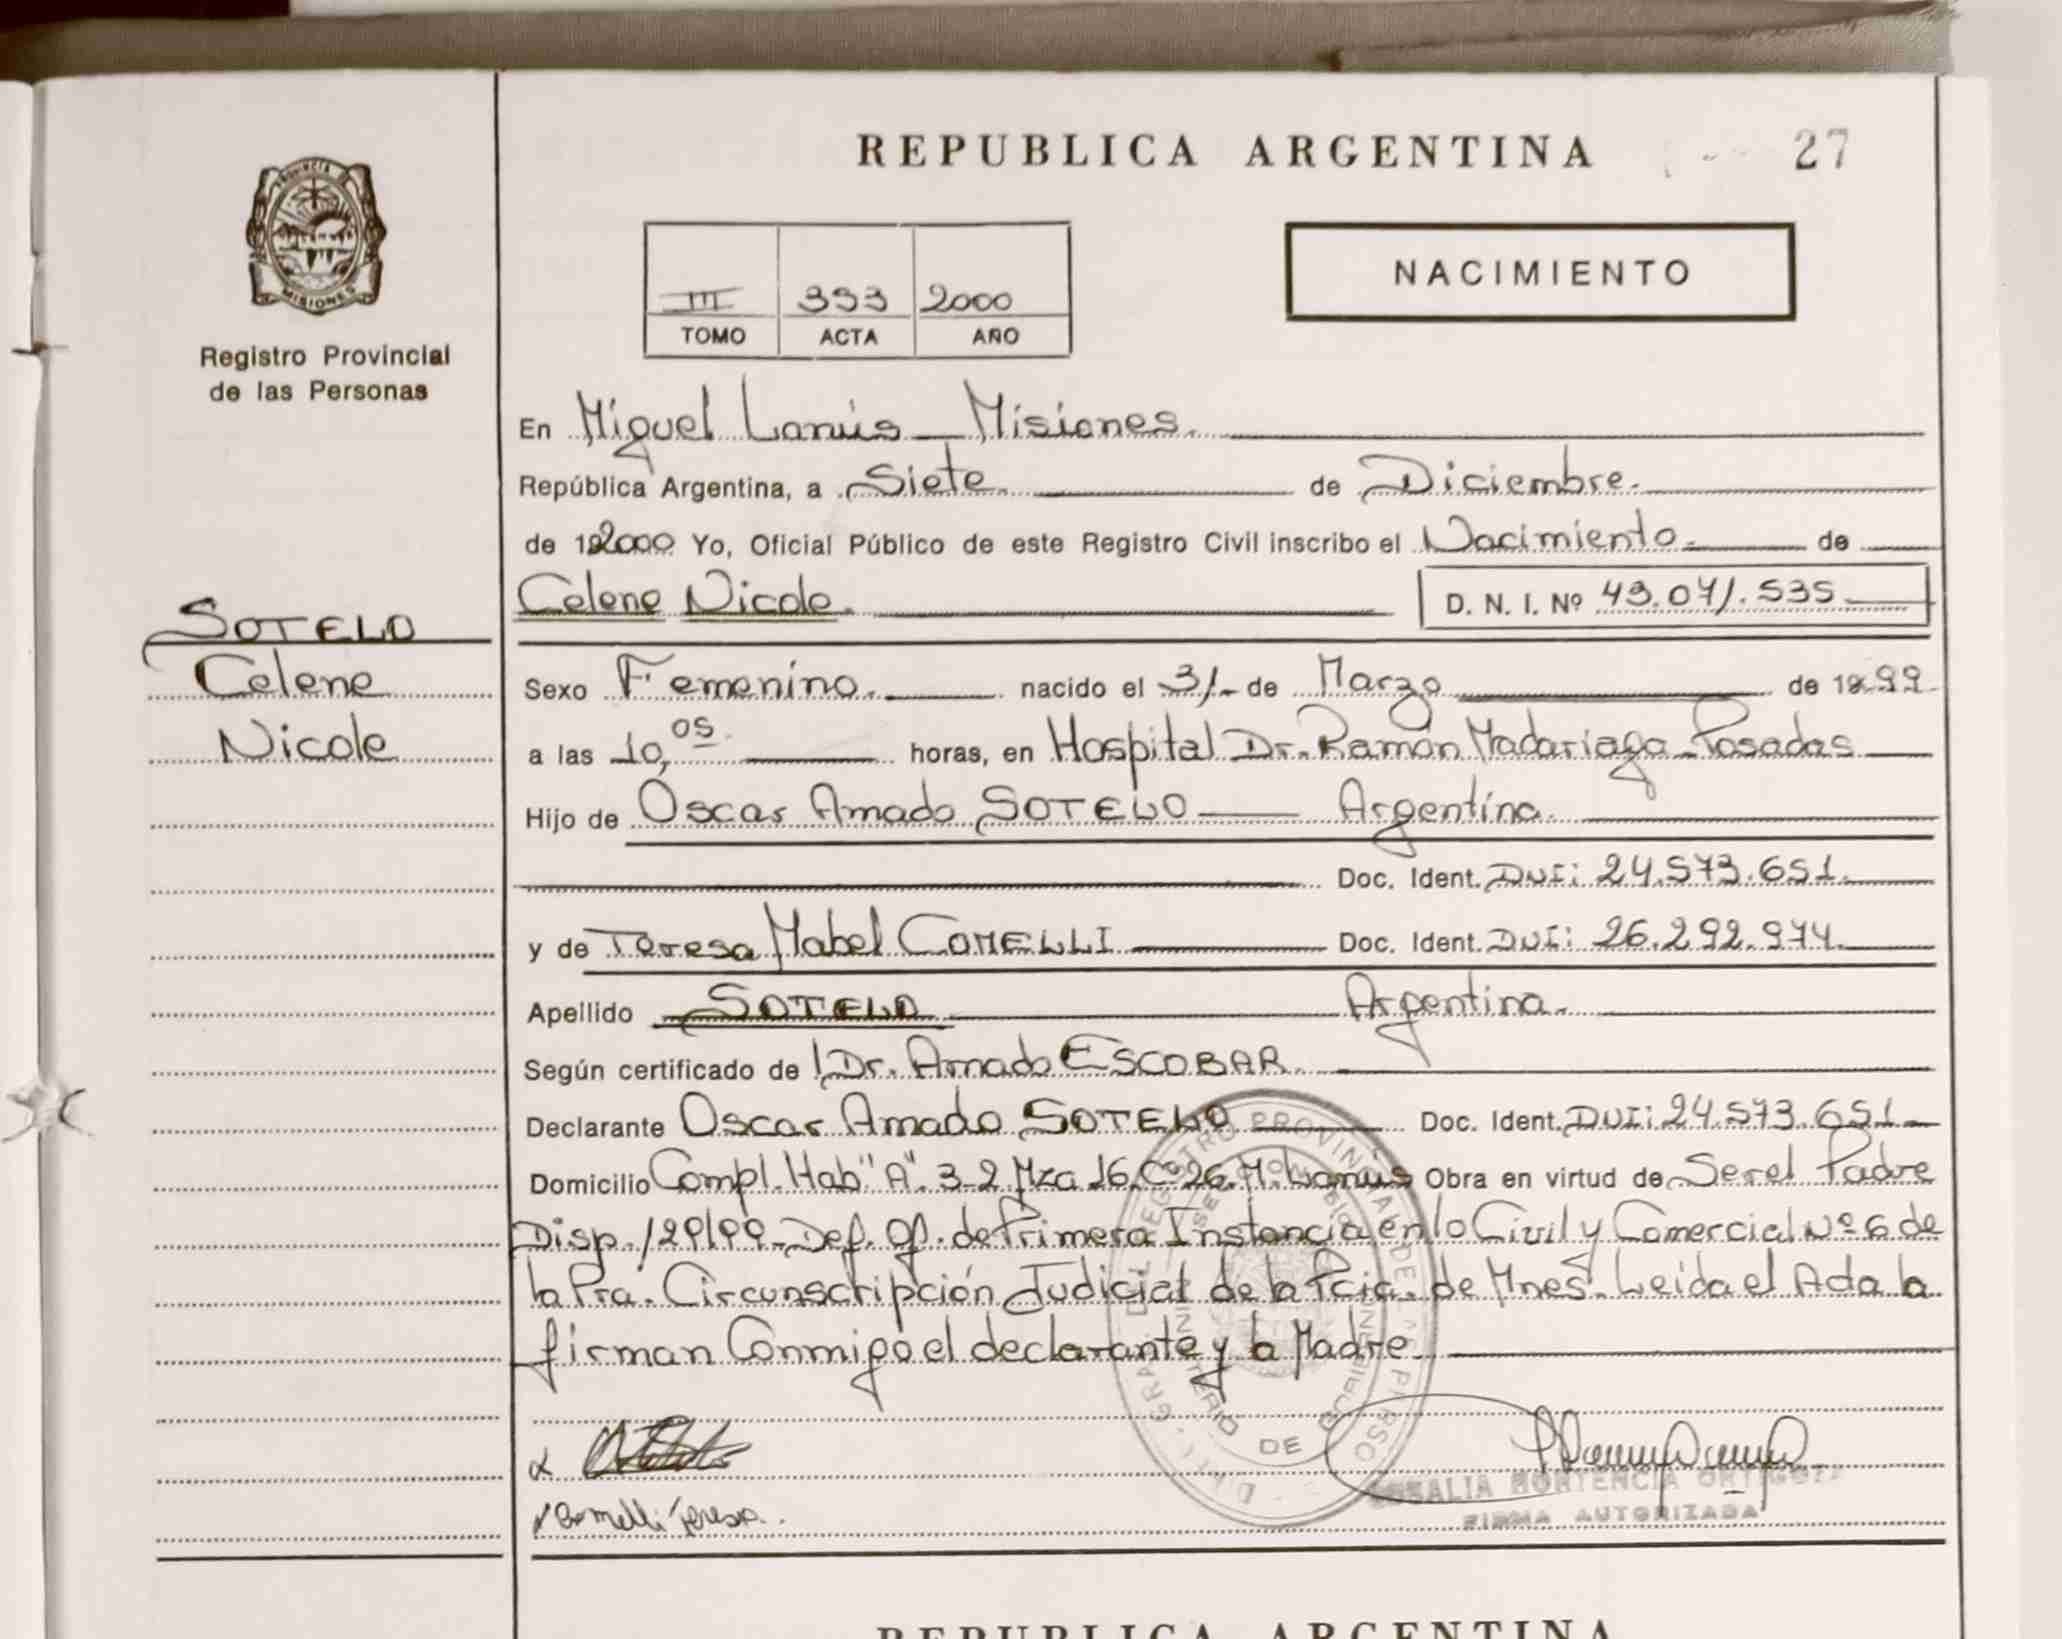 REPUBLICA ARGENTINA
27
PROVINCIA
MISIONES
Registro Provincial
de las Personas
III 393 2000
TOMO ACTA AÑO
NACIMIENTO
En Miguel Lanús - Misiones.
República Argentina, a Siete de Diciembre.
de 192000 Yo, Oficial Público de este Registro Civil inscribo el Nacimiento de
SOTELO
Celene Nicole. D. N. I. Nº 43.071.535
Celene
Sexo Femenino. nacido el 31 de Marzo de 1999
Nicole
a las 10,05 horas, en Hospital Dr. Ramón Madariaga - Posadas
Hijo de Oscar Amado SOTELO Argentina.
Doc. Ident. DNI: 24.573.651.
y de Teresa Mabel COMELLI Doc. Ident. DNI: 26.292.974.
Apellido SOTELO Argentina.
Según certificado de Dr. Amado ESCOBAR.
Declarante Oscar Amado SOTELO Doc. Ident. DNI: 24.573.651
Domicilio Compl. Hab "A" 3-2 Mza 16. Cº 26. M. Lanús Obra en virtud de Ser el Padre
Disp. 129/99 - Def. Of. de Primera Instancia en lo Civil y Comercial Nº 6 de
la Pra. Circunscripción Judicial de la Pcia. de Mnes. Leída el Acta la
firman Conmigo el declarante y la Madre.
Comelli Teresa.
HORTENCIA
FIRMA AUTORIZADA
REPUBLICA ARGENTINA